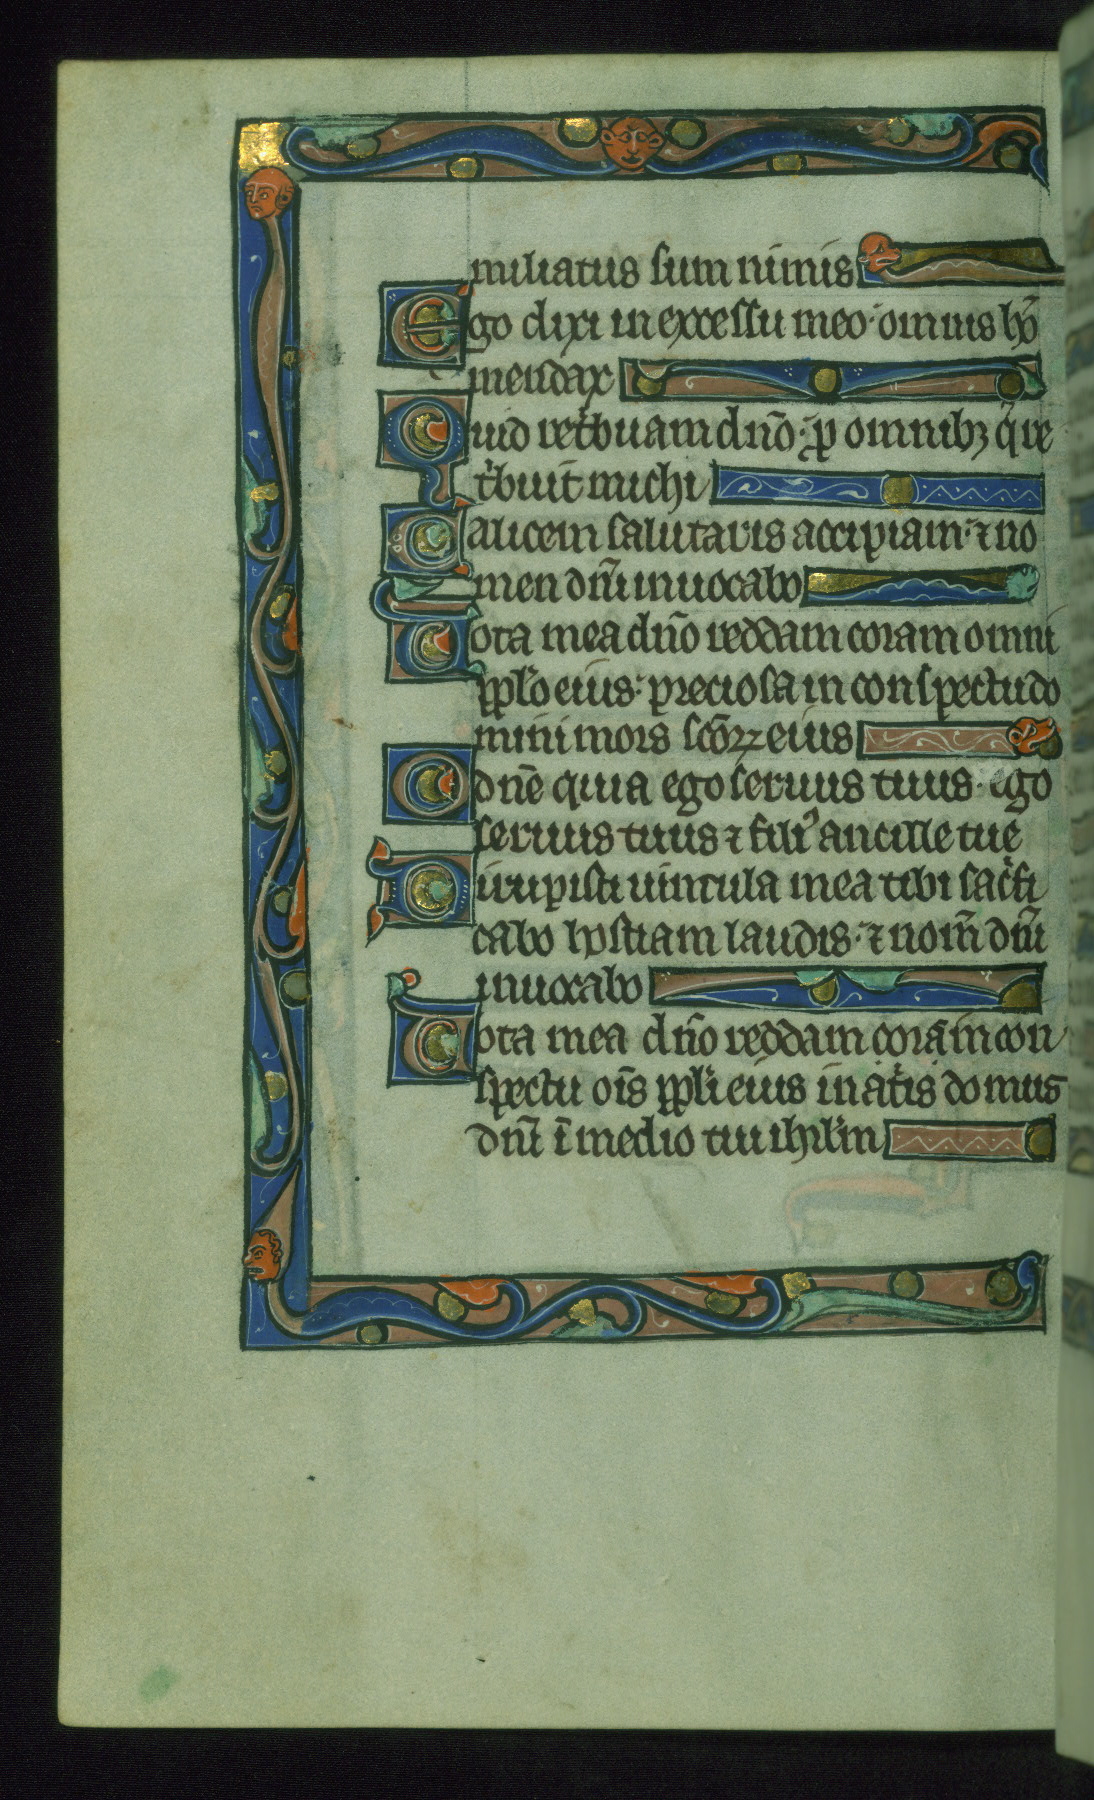 miliatus sum nimis
Ego dixi in excessu meo· omnis hō
mendax
Quid retͥbuam dn̄o· ꝓ omnibꝫ q̄ re
tͥbuit michi
Calicem salutaris accipiam· ⁊ no
men dn̄i inuocabo
Uota mea dn̄o reddam coram omni
ppl̓o eius· preciosa in conspectu do
mini mors sc̄oꝝ eius
O dn̄e quia ego seruus tuus· ego
seruus tuus ⁊ fili᾿ ancille tue
Dirupisti uincula mea tibi sac̓fi
cabo hostiam laudis· ⁊ nom̄ dn̄i
inuocabo
Uota mea dn̄o reddam corā in con
spectu oīs ppl̓i eius in at̓is domus
dn̄i ī medio tui ihrl̓m